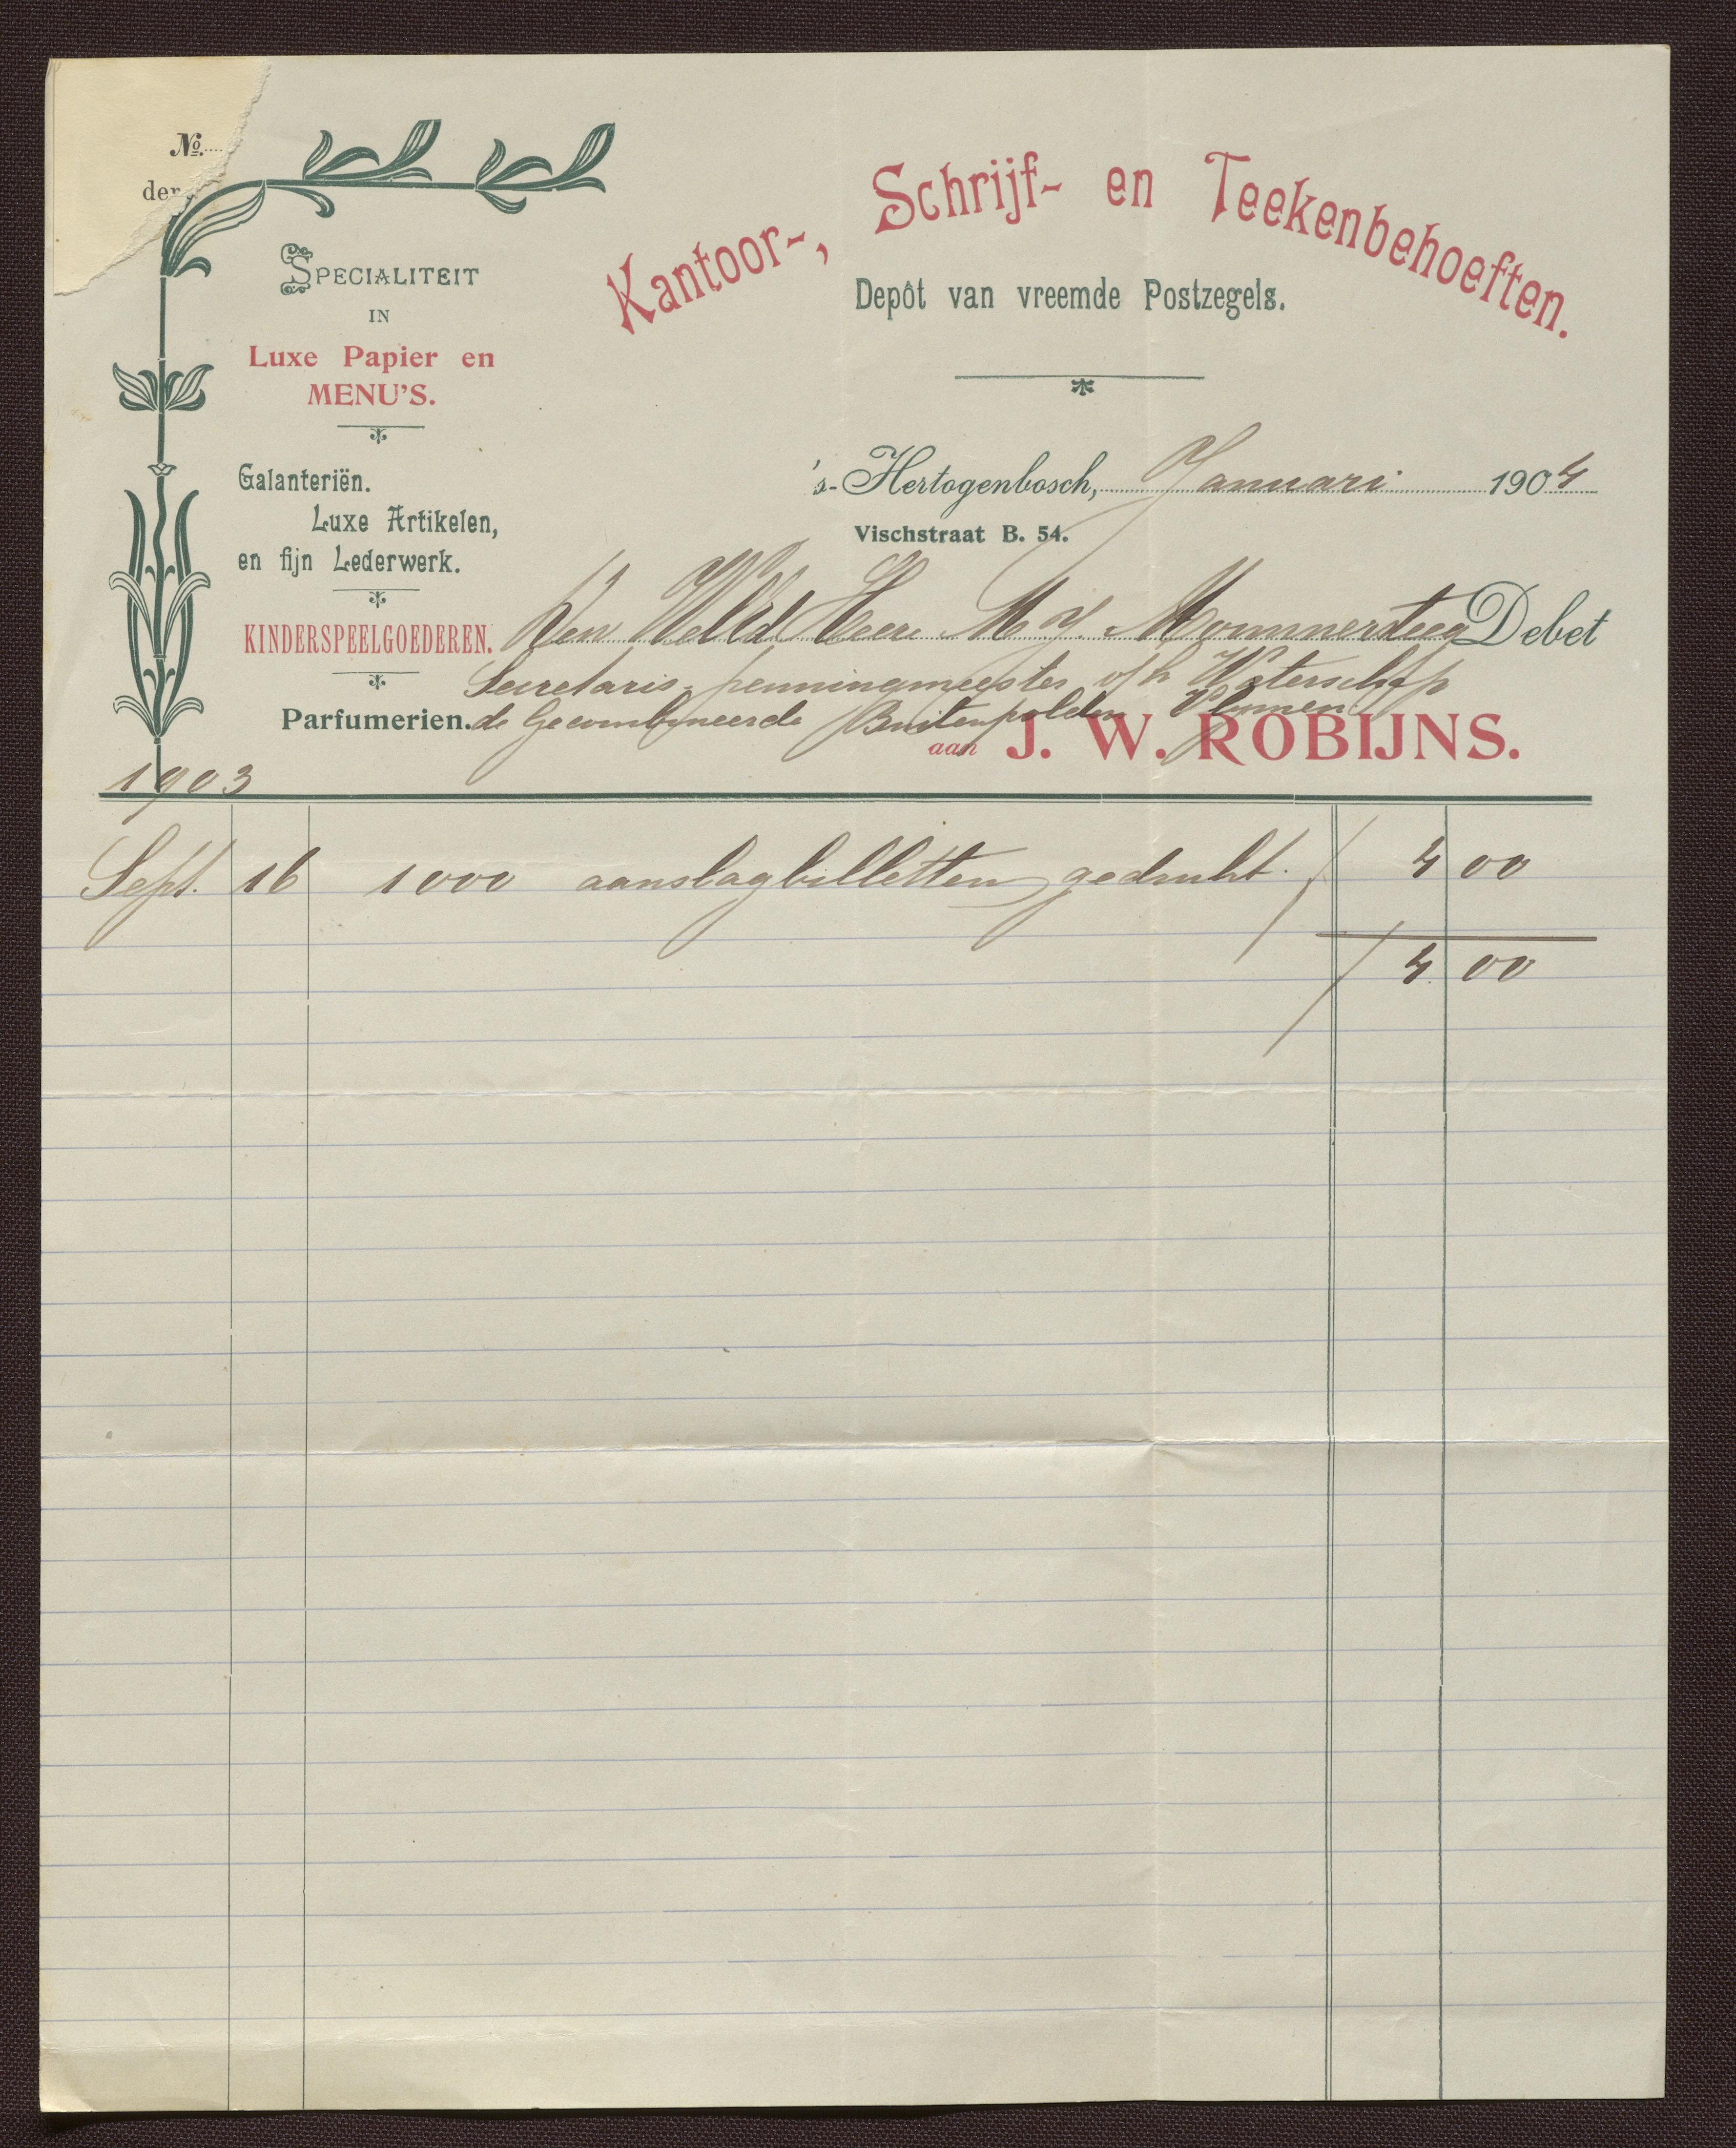 No.
der
SPECIALITEIT
IN
Luxe Papier en
MENU'S.
Galanteriën.
Luxe Artikelen,
en fijn Lederwerk.
KINDERSPEELGOEDEREN.
Parfumerien.
Kantoor-, Schrijf- en Teekenbehoeften.
Depôt van vreemde Postzegels.
's-Hertogenbosch, Januari 1904
Vischstraat B. 54.
Den WelEd Heere M. J. Mommersteeg Debet
Secretaris-penningmeester v/h Waterschap
de Gecombyneerde Buitenpolder Vlymen
aan J. W. ROBIJNS.
1903
Sept. 16 1000 aanslagbilletten gedrukt. / 4 00
/ 4. 00